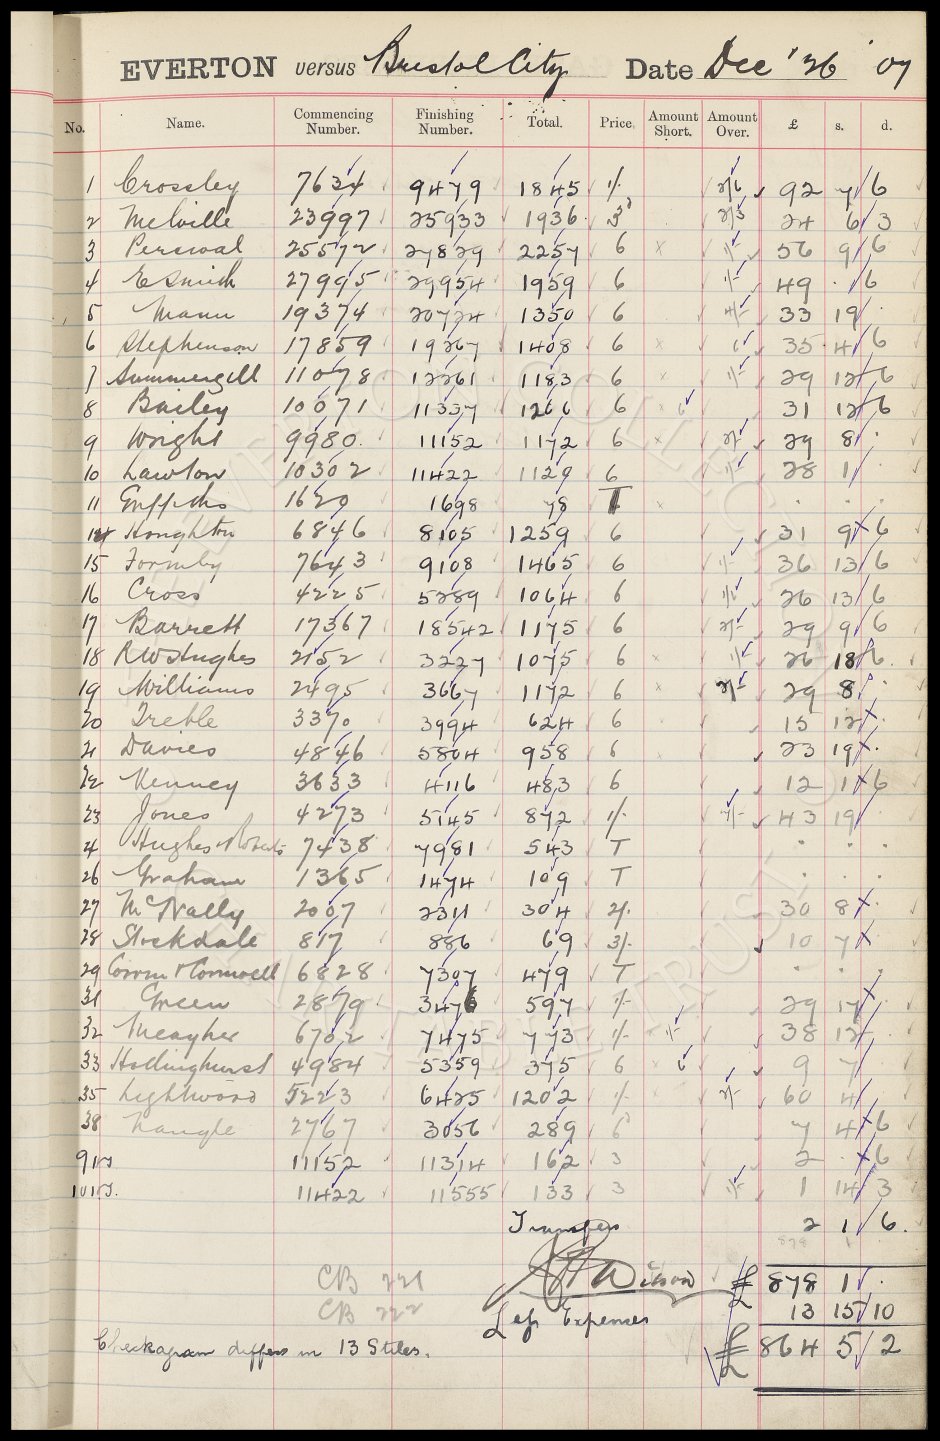 EVERTON versus Bristol City Date Dec' 26 '07
No. Name. Commencing Number. Finishing Number. Total. Price. Amount Short. Amount Over. £ s. d.
1 Crossley 7634 9479 1845 1/- 2/6 92 7 6
2 Melville 23997 25933 1936 3d 2/3 24 6 3
3 Percival 25572 27829 2257 6 x 1/- 56 9 6
4 E Smith 27995 29954 1959 6 1/- 49 . 6
5 Mann 19374 20724 1350 6 4/- 33 19 .
6 Stephenson 17859 19267 1408 6 x 6 35 4 6
7 Summergill 11078 12261 1183 6 x 1/- 29 12 6
8 Bailey 10071 11337 1266 6 x 6 31 12 6
9 Wright 9980 11152 1172 6 x 2/- 29 8 .
10 Lawton 10302 11422 1120 6 1/- 28 1 .
11 Griffiths 1620 1698 78 T x . . .
12 Houghton 6846 8105 1259 6 31 9 6
15 Formby 7643 9108 1465 6 1/- 36 13 6
16 Cross 4225 5289 1064 6 1/6 26 13 6
17 Barrett 17367 18542 1175 6 2/- 29 9 6
18 RW Hughes 2152 3227 1075 6 x 1/- 26 18 6
19 Williams 2495 3667 1172 6 x 2/- 29 8 .
20 Treble 3370 3994 624 6 x 15 12 .
21 Davies 4846 5804 958 6 x 23 19 .
22 Kenney 3633 4116 483 6 12 1 6
23 Jones 4273 5145 872 1/- 7/- 43 19 .
24 Hughes & Roberts 7438 7981 543 T . . .
26 Graham 1365 1474 109 T . . .
27 McNally 2007 2311 304 2/- 30 8 .
28 Stockdale 817 886 69 3/- 10 7 .
29 & Cornwell 6828 7307 479 T . . .
31 Green 2879 3476 597 1/- 29 17 .
32 Meagher 6702 7475 773 1/- 1/- 38 12
33 Hollinghurst 4984 5359 375 6 x 6 9 7
35 Lightwood 5223 6425 1202 1/- 2/- 60 4
38 Nangle 2767 3056 289 6 7 4 6
9 11152 11314 162 3 2 . 6
10 11422 11555 133 3 1/- 1 14 3
Transfers 2 1 6
CB 221 £ 878 1 .
CB 222 Less Expenses 13 15 10
Checkagram differs in 13 Stiles. £ 864 5 2